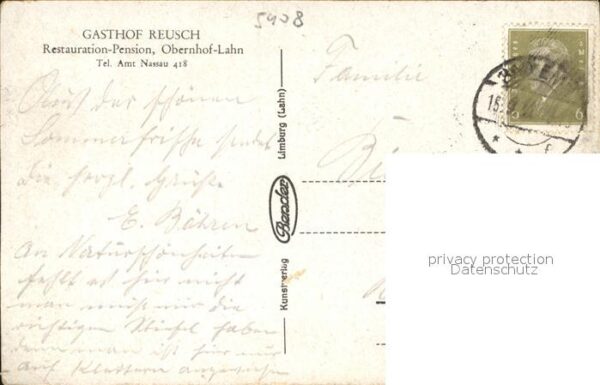 GASTHOF REUSCH
Restauration-Pension, Obernhof-Lahn
Tel. Amt Nassau 418
5408
Aus der schönen
Sommerfrische sendet
die herzl. Grüße
E. Böhren
An Naturschönheiten
fehlt es hier nicht
man muß nur die
richtigen Stiefel haben
denn man ist hier nur
auf Klettern angewiesen
Kunstverlag Bender Limburg (Lahn)
Familie
6
privacy protection
Datenschutz